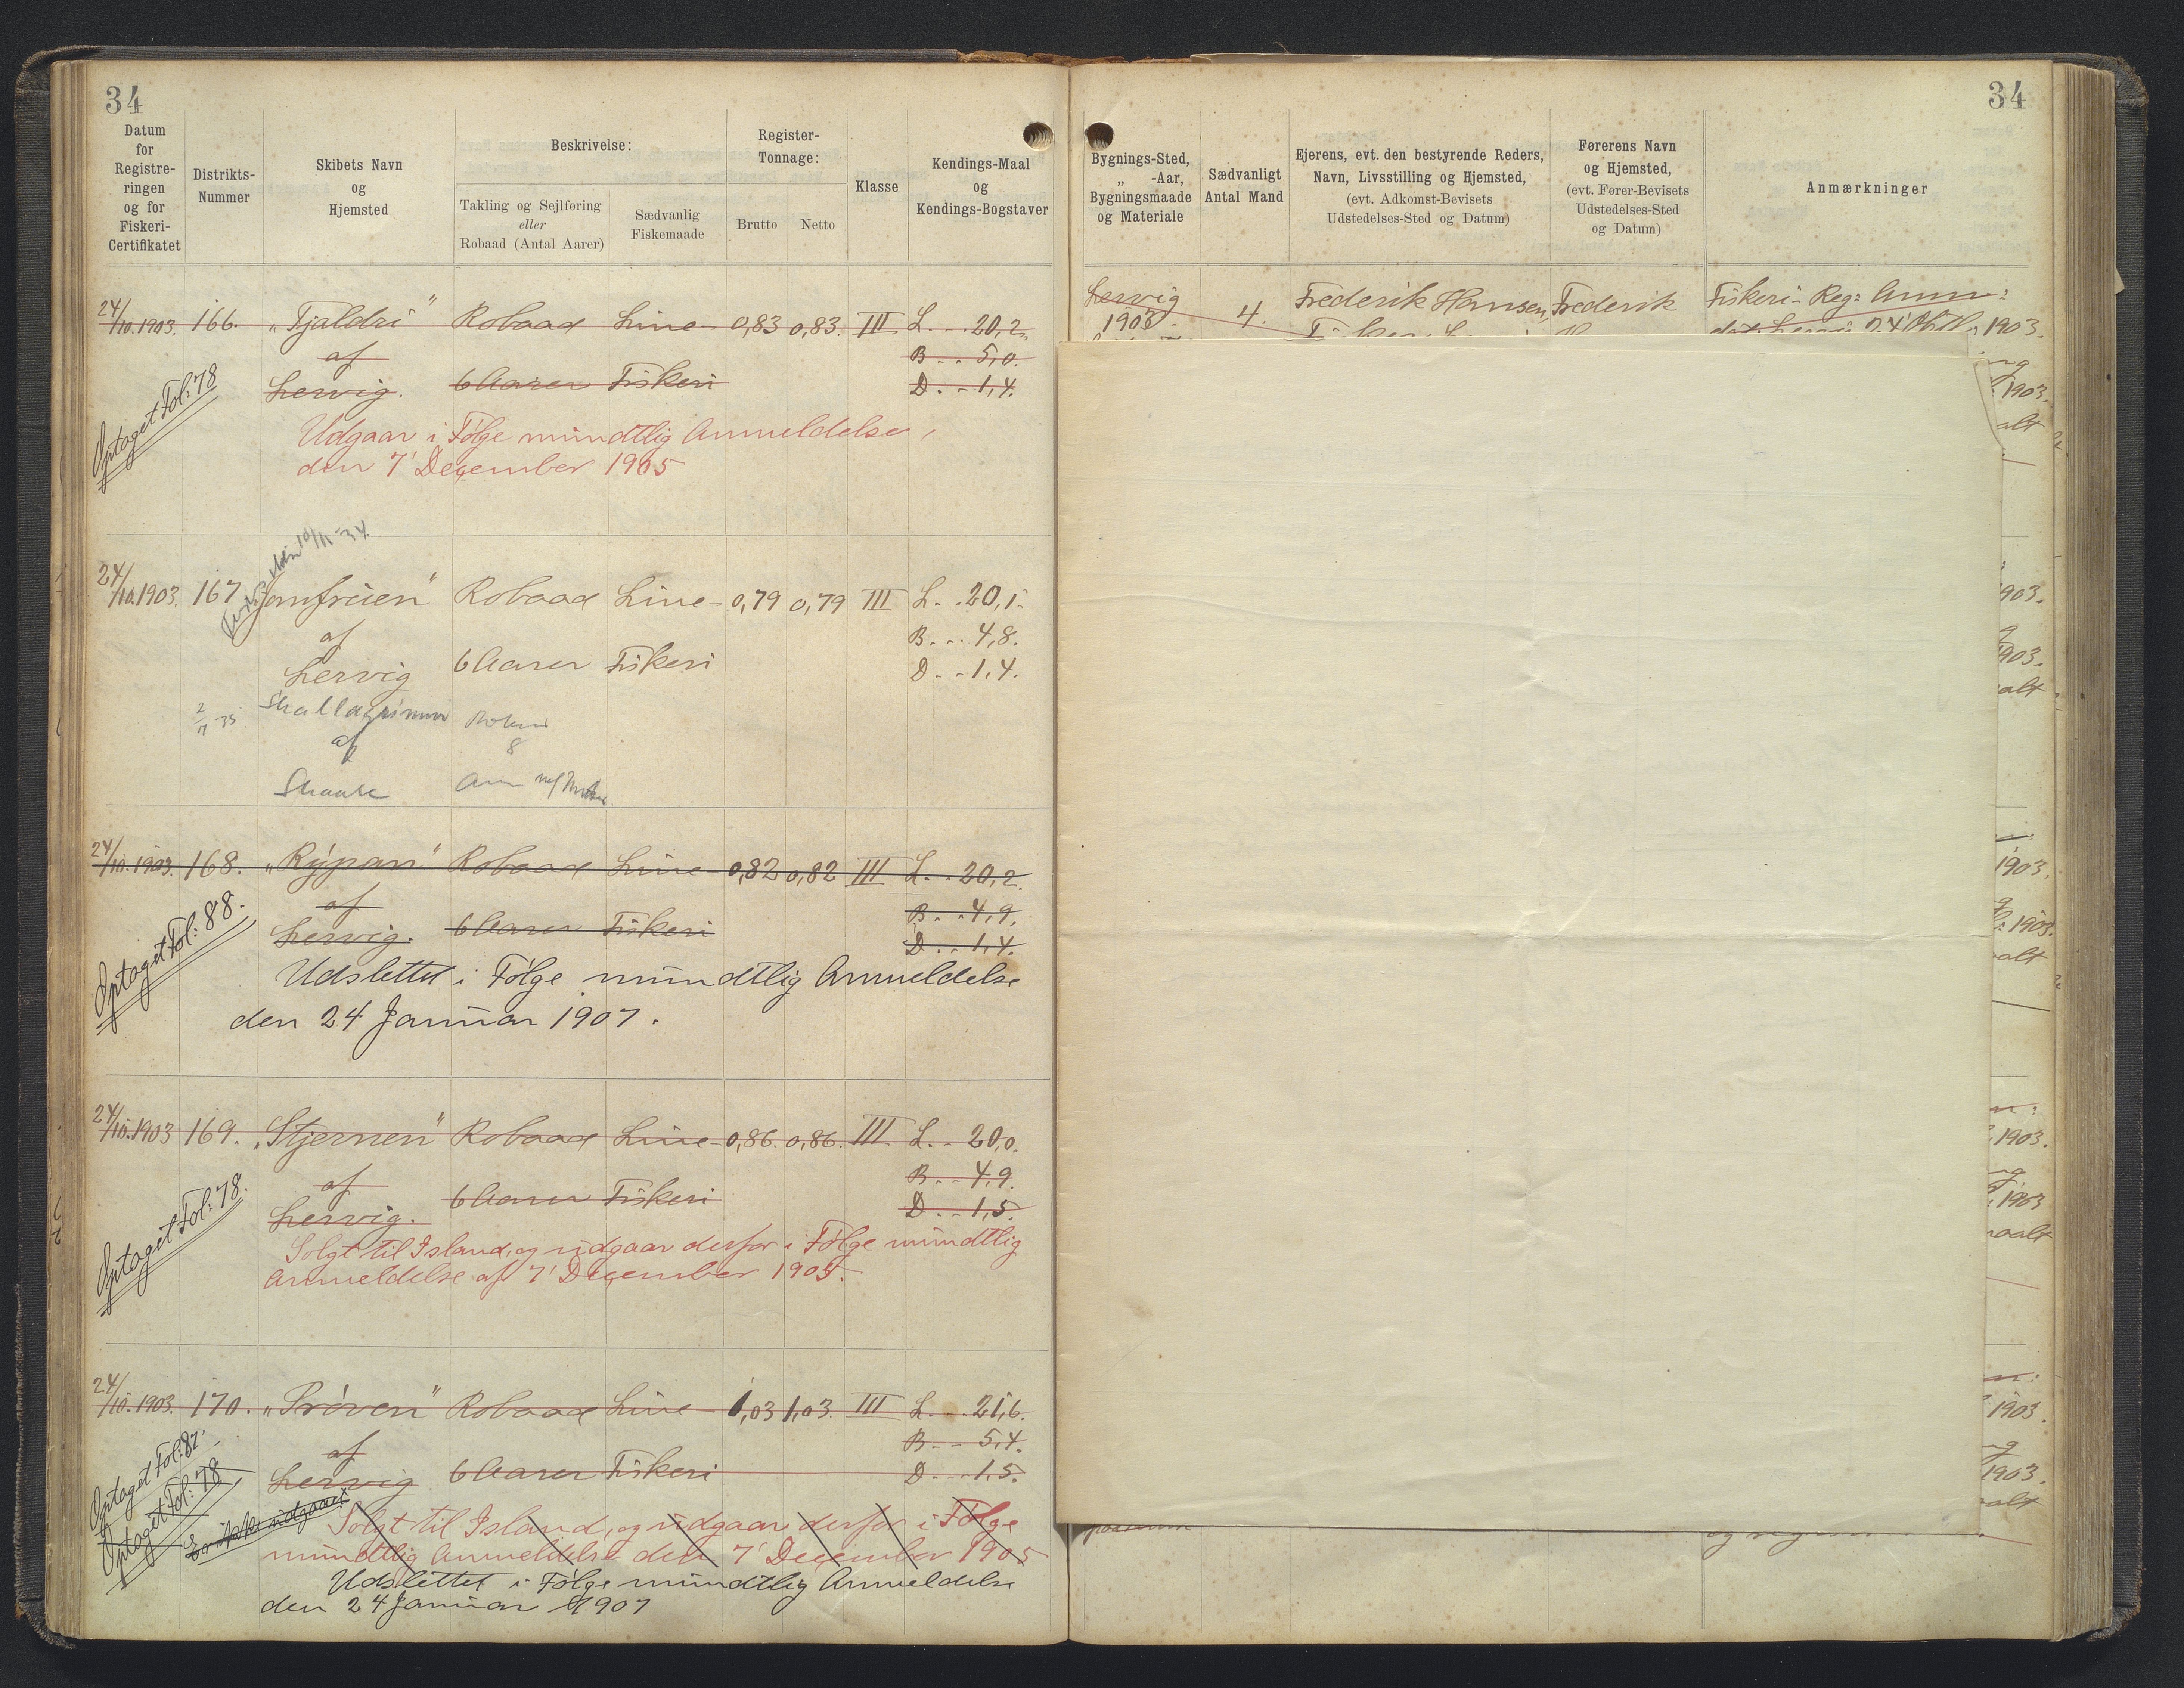 34
Datum for Registreringen og for Fiskeri-Certifikatet
Distrikts-Nummer
Skibets Navn og Hjemsted
Beskrivelse:
Takling og Sejlføring eller Robaad (Antal Aarer)
Sædvanlig Fiskemaade
Register-Tonnage:
Brutto Netto
Klasse
Kendings-Maal og Kendings-Bogstaver
24/10.1903. 166. „Tjaldri“ Robaad Line- 0,83 0,83. III L. . . 20,2
af B . . 5,0.
Lervig. 6 Aarer Fiskeri D. . . 1,4.
Optaget Fol: 78
Udgaar i Følge mundtlig Anmeldelse,
den 7' December 1905
10/11-34
24/10.1903. 167 Jomfruen“ Robaad Line- 0,79 0,79 III L. . 20,1.
af B. . . 4,8.
Lervig 6 Aarer Fiskeri D. . . 1,4.
2/7-35 Skallagrimur
af 8
Skaale
24/10.1903. 168. „Rýpan“ Robaad Line- 0,82 0,82 III L. . 20,2.
af B. . . 4,9.
Lervig. 6 Aarer Fiskeri D. . . 1,4.
Optaget Fol: 88.
Udslettet i Følge mundtlig Anmeldelse
den 24 Januar 1907.
24/10.1903 169. „Stjernen“ Robaad Line- 0,86. 0,86. III L. . . 20,0.
af B. . . 4,9.
Lervig. 6 Aarer Fiskeri D. . . 1,5.
Optaget Fol: 78.
Solgt til Island, og udgaar derfor i Følge mundtlig
Anmeldelse af 7' December 1905.
24/10.1903. 170. „Prøven“ Robaad Line- 1,03 1,03. III L. . . 21,6.
af B. . . 5,4.
Lervig 6 Aarer Fiskeri D. . . 1,5.
Optaget Fol: 87.
Optaget Fol: 78
Er ikke udgaaet
Solgt til Island, og udgaar derfor i Følge
mundtlig Anmeldelse den 7' December 1905
Udslettet i Følge mundtlig Anmeldelse
den 24 Januar 1907
34
Bygnings-Sted, „ -Aar, Bygningsmaade og Materiale
Sædvanligt Antal Mand
Ejerens, evt. den bestyrende Reders, Navn, Livsstilling og Hjemsted, (evt. Adkomst-Bevisets Udstedelses-Sted og Datum)
Førerens Navn og Hjemsted, (evt. Fører-Bevisets Udstedelses-Sted og Datum)
Anmærkninger
Lervig Frederik Hansen, Frederik Fiskeri-Reg: Anm:
1903. 4. 1903.
1903.
alt
903.
903.
alt
1903.
1903.
alt
1903.
1903
aalt
1903.
1903.
alt